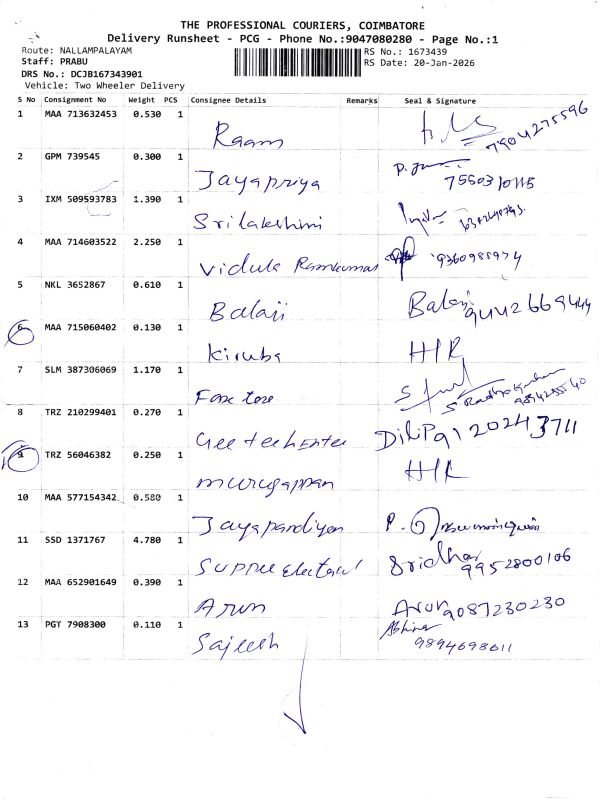 THE PROFESSIONAL COURIERS, COIMBATORE
Delivery Runsheet - PCG - Phone No.:9047080280 - Page No.:1
Route: NALLAMPALAYAM RS No.: 1673439
Staff: PRABU RS Date: 20-Jan-2026
DRS No.: DCJB167343901
Vehicle: Two Wheeler Delivery
S No Consignment No Weight PCS Consignee Details Remarks Seal & Signature
1 MAA 713632453 0.530 1 Raam 7904275596
2 GPM 739545 0.300 1 Jayapriya 7550310115
3 IXM 509593783 1.390 1 Srilakshmi
4 MAA 714603522 2.250 1 Vidula Ramkumar 9360988974
5 NKL 3652867 0.610 1 Balaji Balaji 9442669444
6 MAA 715060402 0.130 1 Kiruba H/R
7 SLM 387306069 1.170 1
8 TRZ 210299401 0.270 1 Geetech Enter DiliP 9120243711
9 TRZ 56046382 0.250 1 murugappan H/R
10 MAA 577154342 0.580 1 Jayapandiyan P.
11 SSD 1371767 4.780 1 Sridhar 9952800106
12 MAA 652901649 0.390 1 Arun Arun 9087230230
13 PGT 7908300 0.110 1 Sajeesh 9894698611